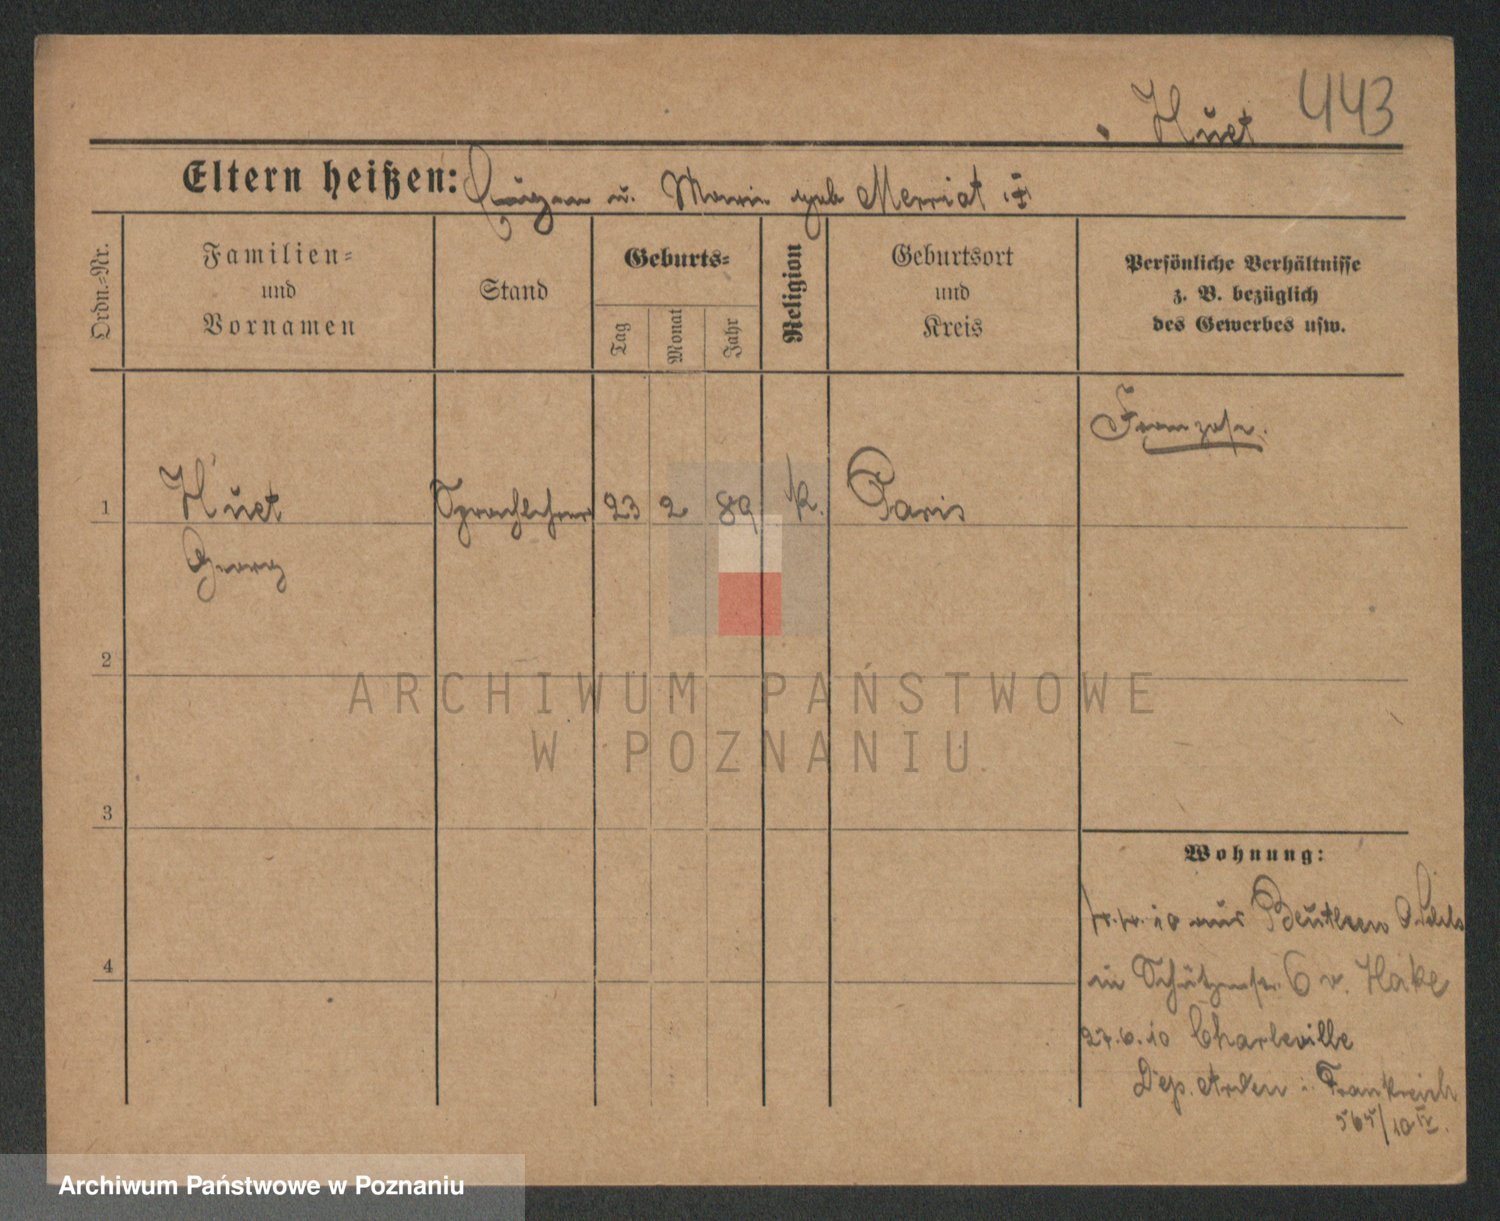 Huet 443
Eltern heißen: Eugen u. Marie geb Merriat
Ordn.-Nr.
Familien-
und
Vornamen
Stand
Geburts-
Tag
Monat
Jahr
Religion
Geburtsort
und
Kreis
Persönliche Verhältnisse
z. B. bezüglich
des Gewerbes usw.
Franzose.
1 Huet Sprachlehrer 23 2 89 k. Paris
Georg
2
3
4
Wohnung:
10 aus Beuthen O. Schls
in Schützenstr. 6 v. Hake
27.6.10 Charleville
Dep. Arden i. Frankreich
565/10 IV.
ARCHIWUM PAŃSTWOWE
W POZNANIU
Archiwum Państwowe w Poznaniu